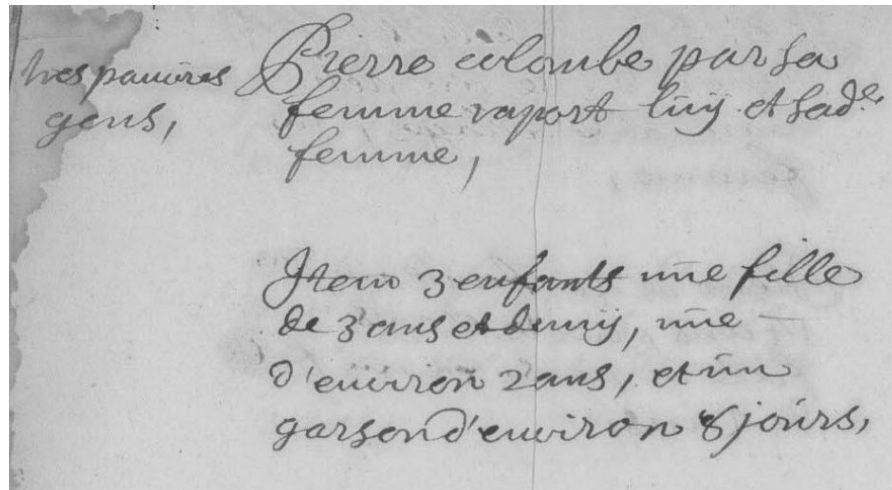 tres pauures
gens,
Pierre colombe par sa
femme raport luy et sad.e
femme,
Item 3 enfants une fille
de 3 ans et demy, une
d'enuiron 2 ans, et un
garson d'enuiron 8 jours,